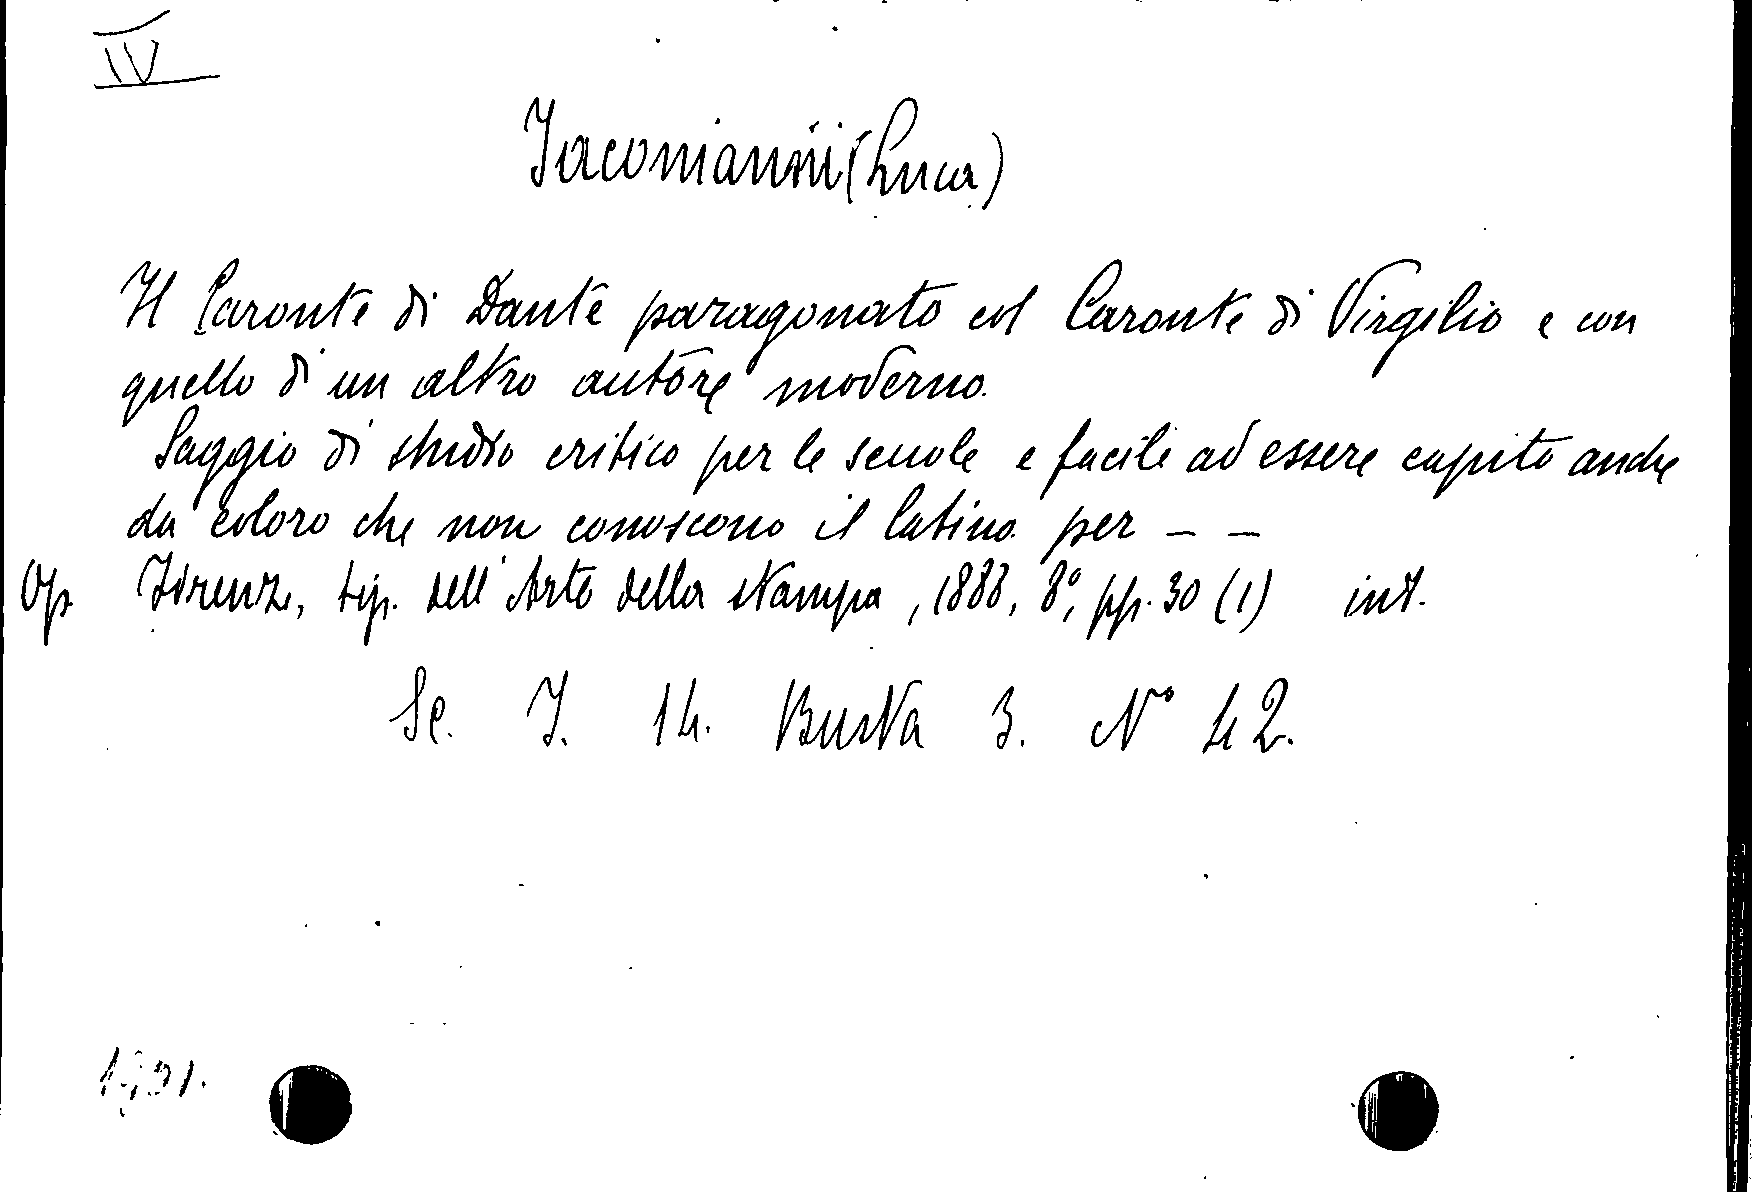 IV
Iacomianni (Luca)
Il Caronte di Dante paragonato col Caronte di Virgilio e con
quello di un altro autore moderno.
Saggio di studio critico per le scuole e facile ad essere capito anche
da coloro che non conoscono il latino per – –
Op. Firenze, tip. dell'Arte della stampa, 1888, 8°, pp. 30 (1) int.
Sc. I. 14. Busta 3. N° 42.